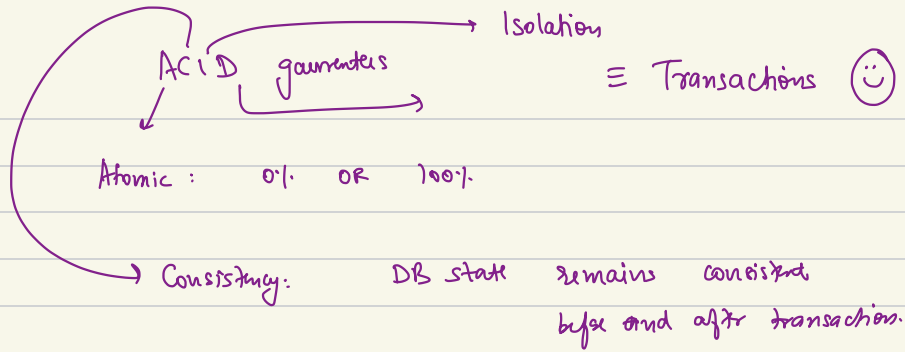 Isolation
ACID gaurrentees
≡ Transactions
Atomic : 0% OR 100%
Consistency: DB state remains consistent
before and after transaction.